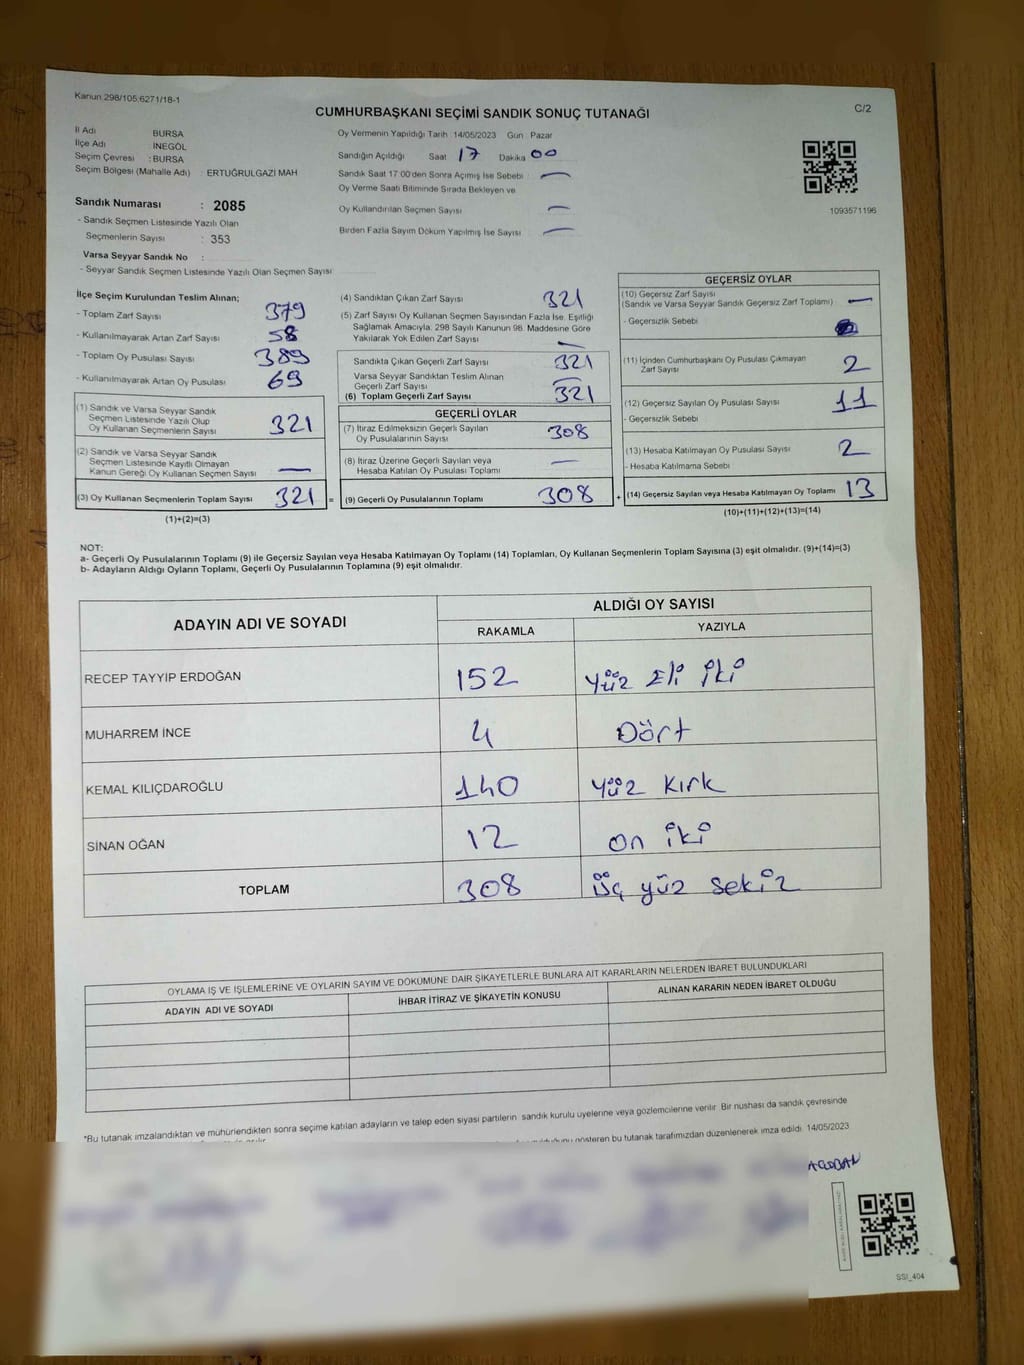 Kanun 298/105:6271/18-1
C/2
CUMHURBAŞKANI SEÇİMİ SANDIK SONUÇ TUTANAĞI
İl Adı BURSA
İlçe Adı : İNEGÖL
Seçim Çevresi : BURSA
Seçim Bölgesi (Mahalle Adı) : ERTUĞRULGAZİ MAH
Sandık Numarası : 2085
- Sandık Seçmen Listesinde Yazılı Olan
Seçmenlerin Sayısı : 353
Varsa Seyyar Sandık No :
- Seyyar Sandık Seçmen Listesinde Yazılı Olan Seçmen Sayısı
Oy Vermenin Yapıldığı Tarih : 14/05/2023 Gün : Pazar
Sandığın Açıldığı Saat 17 Dakika 00
Sandık Saat 17:00'den Sonra Açımış İse Sebebi : —
Oy Verme Saati Bitiminde Sırada Bekleyen ve
Oy Kullandırılan Seçmen Sayısı —
Birden Fazla Sayım Döküm Yapılmış İse Sayısı —
1093571196
İlçe Seçim Kurulundan Teslim Alınan;
- Toplam Zarf Sayısı 379
- Kullanılmayarak Artan Zarf Sayısı 58
- Toplam Oy Pusulası Sayısı 389
- Kullanılmayarak Artan Oy Pusulası 69
(1) Sandık ve Varsa Seyyar Sandık
Seçmen Listesinde Yazılı Olup
Oy Kullanan Seçmenlerin Sayısı 321
(2) Sandık ve Varsa Seyyar Sandık
Seçmen Listesinde Kayıtlı Olmayan
Kanun Gereği Oy Kullanan Seçmen Sayısı —
(3) Oy Kullanan Seçmenlerin Toplam Sayısı 321 =
(1)+(2)=(3)
(4) Sandıktan Çıkan Zarf Sayısı 321
(5) Zarf Sayısı Oy Kullanan Seçmen Sayısından Fazla İse, Eşitliği
Sağlamak Amacıyla, 298 Sayılı Kanunun 98. Maddesine Göre
Yakılarak Yok Edilen Zarf Sayısı —
Sandıkta Çıkan Geçerli Zarf Sayısı 321
Varsa Seyyar Sandıktan Teslim Alınan
Geçerli Zarf Sayısı —
(6) Toplam Geçerli Zarf Sayısı 321
GEÇERLİ OYLAR
(7) İtiraz Edilmeksizin Geçerli Sayılan
Oy Pusulalarının Sayısı 308
(8) İtiraz Üzerine Geçerli Sayılan veya
Hesaba Katılan Oy Pusulası Toplamı —
(9) Geçerli Oy Pusulalarının Toplamı 308 +
GEÇERSİZ OYLAR
(10) Geçersiz Zarf Sayısı
(Sandık ve Varsa Seyyar Sandık Geçersiz Zarf Toplamı) —
- Geçersizlik Sebebi
(11) İçinden Cumhurbaşkanı Oy Pusulası Çıkmayan
Zarf Sayısı 2
(12) Geçersiz Sayılan Oy Pusulası Sayısı 11
- Geçersizlik Sebebi
(13) Hesaba Katılmayan Oy Pusulası Sayısı 2
- Hesaba Katılmama Sebebi
(14) Geçersiz Sayılan veya Hesaba Katılmayan Oy Toplamı 13
(10)+(11)+(12)+(13)=(14)
NOT:
a- Geçerli Oy Pusulalarının Toplamı (9) ile Geçersiz Sayılan veya Hesaba Katılmayan Oy Toplamı (14) Toplamları, Oy Kullanan Seçmenlerin Toplam Sayısına (3) eşit olmalıdır. (9)+(14)=(3)
b- Adayların Aldığı Oyların Toplamı, Geçerli Oy Pusulalarının Toplamına (9) eşit olmalıdır.
ADAYIN ADI VE SOYADI ALDIĞI OY SAYISI
RAKAMLA YAZIYLA
RECEP TAYYİP ERDOĞAN 152 Yüz Eli iki
MUHARREM İNCE 4 Dört
KEMAL KILIÇDAROĞLU 140 Yüz Kırk
SİNAN OĞAN 12 on iki
TOPLAM 308 üç yüz sekiz
OYLAMA İŞ VE İŞLEMLERİNE VE OYLARIN SAYIM VE DÖKÜMÜNE DAİR ŞİKAYETLERLE BUNLARA AİT KARARLARIN NELERDEN İBARET BULUNDUKLARI
ADAYIN ADI VE SOYADI İHBAR İTİRAZ VE ŞİKAYETİN KONUSU ALINAN KARARIN NEDEN İBARET OLDUĞU
*Bu tutanak imzalandıktan ve mühürlendikten sonra seçime katılan adayların ve talep eden siyasi partilerin sandık kurulu üyelerine veya gözlemcilerine verilir. Bir nüshası da sandık çevresinde
gösteren bu tutanak tarafımızdan düzenlenerek imza edildi. 14/05/2023
SSI_404